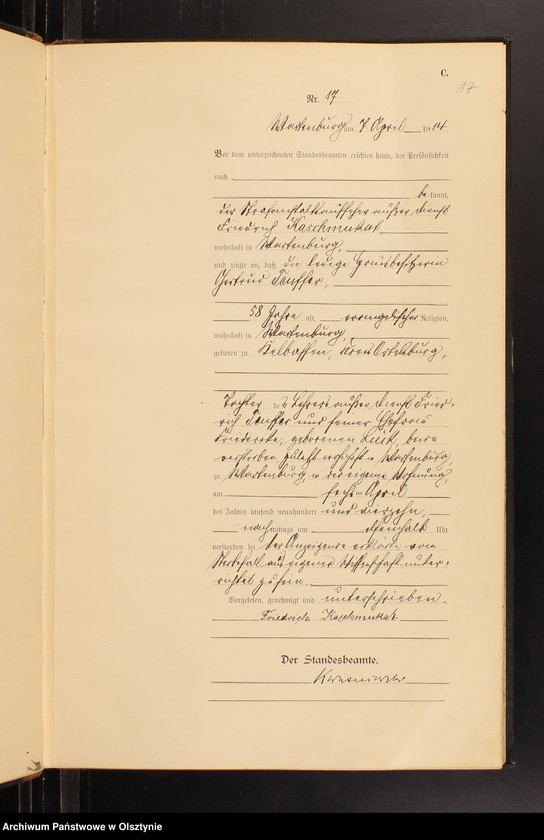 C.
17
Nr. 17
Wartenburg am 7 April 1914
Vor dem unterzeichneten Standesbeamten erschien heute, der Persönlichkeit
nach
be kannt,
der Strafanstaltsaufseher außer Dienst
Friedrich Kaschmukat,
wohnhaft in Wartenburg,
und zeigte an, daß die ledige Hausbesitzerin
Gertrud
58 Jahre alt, evangelischer Religion,
wohnhaft in Wartenburg,
geboren zu Kreis Ortelsburg,
Tochter des Lehrers außer Dienst Fried-
rich und seiner Ehefrau
Friederike, geborenen beide
verstorben, zuletzt wohnhaft in Wartenburg,
zu Wartenburg, in der eigenen Wohnung,
am sechsten April
des Jahres tausend neunhundert und vierzehn,
nach mittags um Uhr
verstorben sei. Der Anzeigende erklärte vom
Sterbefall aus eigener Wissenschaft unter-
richtet zu sein.
Vorgelesen, genehmigt und unterschrieben.
Friedrich Kaschmukat
Der Standesbeamte.
Archiwum Państwowe w Olsztynie